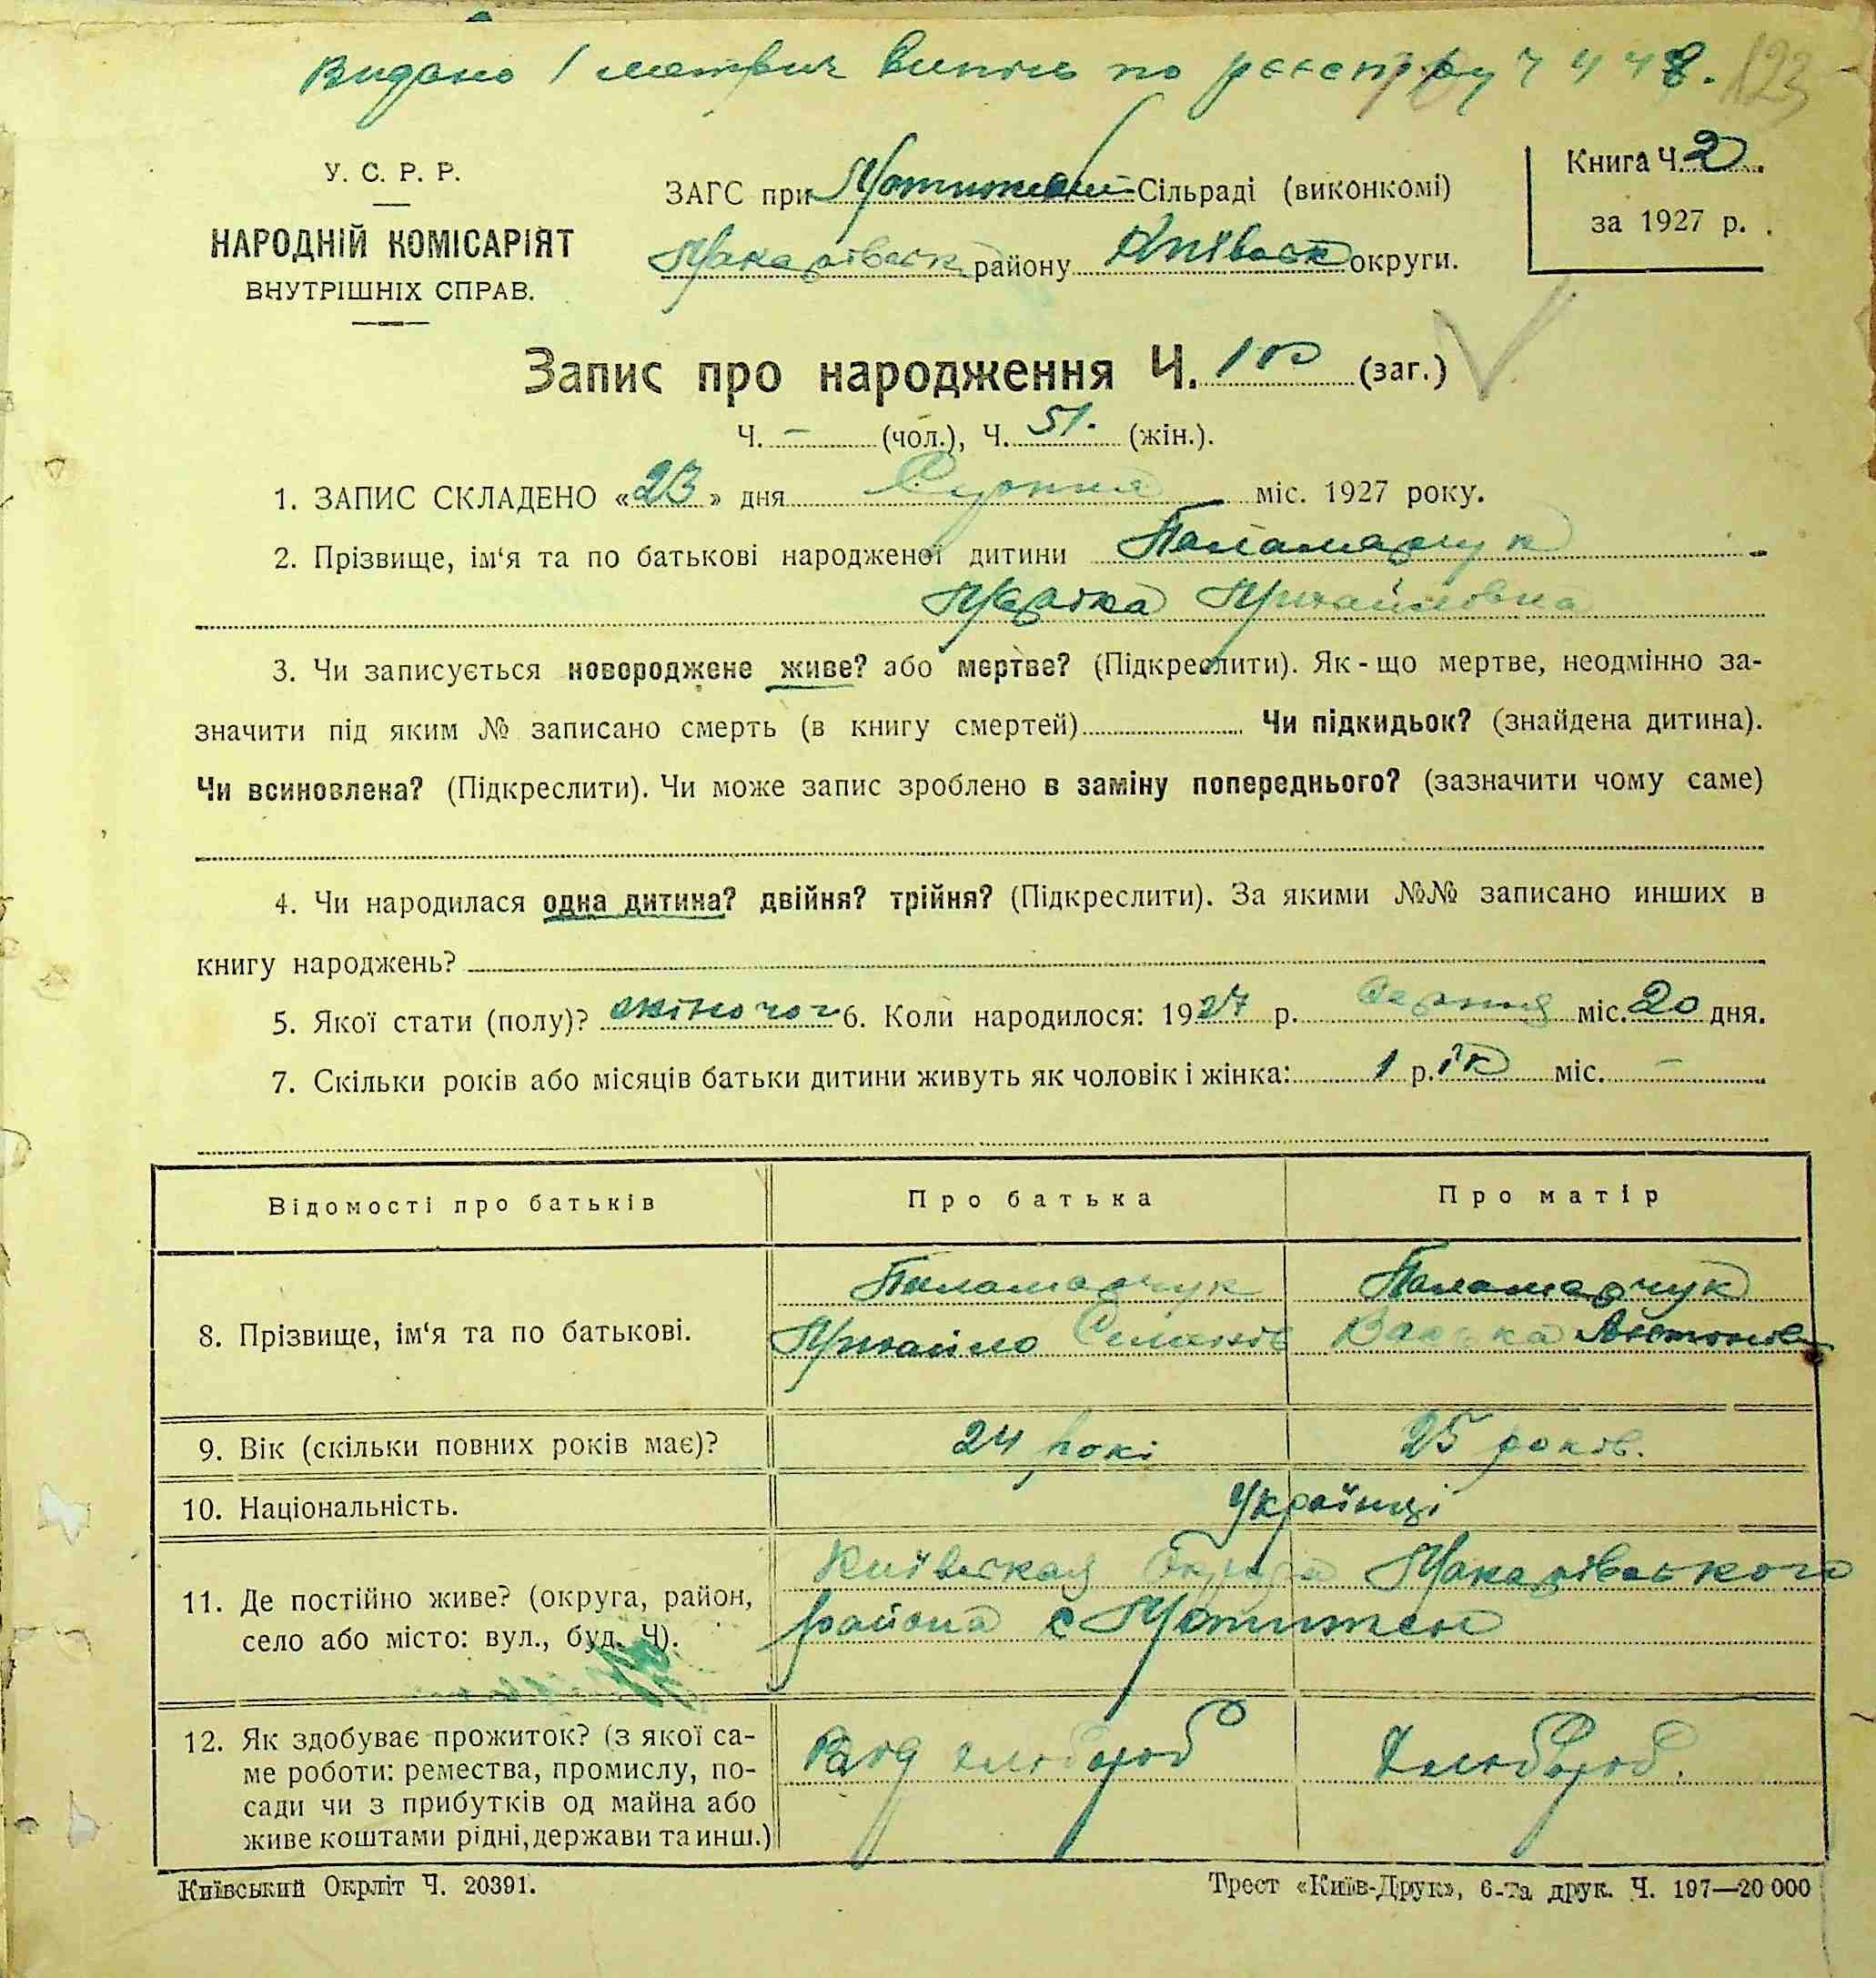 Видано 1 метрич випись по реєстру ч 448. 123
У. С. Р. Р.
НАРОДНІЙ КОМІСАРІЯТ
ВНУТРІШНІХ СПРАВ.
ЗАГС при Мотижській Сільраді (виконкомі)
Макарівськ району Київськ округи.
Книга Ч. 2
за 1927 р.
Запис про народження Ч. 100 (заг.)
Ч. – (чол.), Ч. 51. (жін.).
1. ЗАПИС СКЛАДЕНО «23» дня Серпня міс. 1927 року.
2. Прізвище, ім‘я та по батькові народженої дитини Паламарчук
Марійка Михайлівна
3. Чи записується новороджене живе? або мертве? (Підкреслити). Як-що мертве, неодмінно за-
значити під яким № записано смерть (в книгу смертей) Чи підкидьок? (знайдена дитина).
Чи всиновлена? (Підкреслити). Чи може запис зроблено в заміну попереднього? (зазначити чому саме)
4. Чи народилася одна дитина? двійня? трійня? (Підкреслити). За якими №№ записано инших в
книгу народжень?
5. Якої стати (полу)? жіночог 6. Коли народилося: 1927 р. Серпня міс. 20 дня.
7. Скільки років або місяців батьки дитини живуть як чоловік і жінка: 1 р. ік міс. –
Відомості про батьків Про батька Про матір
8. Прізвище, ім‘я та по батькові.
Паламарчук
Михайло Семенов
Паламарчук
Антонов
9. Вік (скільки повних років має)? 24 рокі 25 років.
10. Національність. Українці
11. Де постійно живе? (округа, район,
село або місто: вул., буд. Ч).
Київская Округа Макарівського
района с Мотижен
12. Як здобуває прожиток? (з якої са-
ме роботи: ремества, промислу, по-
сади чи з прибутків од майна або
живе коштами рідні, держави та инш.)
Від хлібороб
Хлібороб.
Київський Окрліт Ч. 20391.
Трест «Київ-Друк», 6-та друк. Ч. 197—20 000